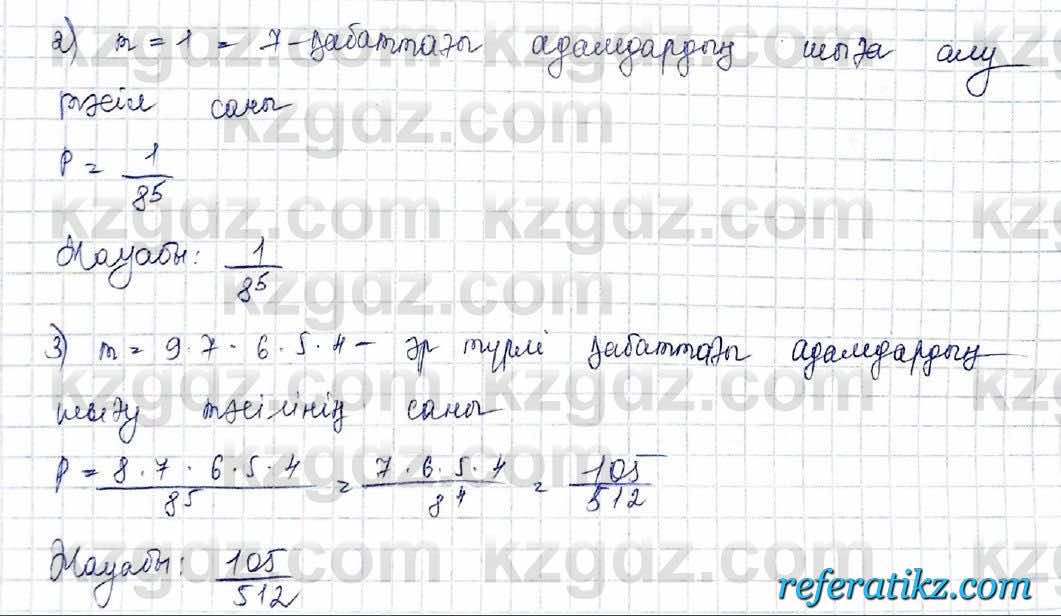 2) m = 1 - 7-қабаттағы адамдардың шыға алу
тәсіл саны
P = 1/8⁵
Жауабы: 1/8⁵
3) m = 9·7·6·5·4 – әр түрлі қабаттағы адамдардың
шығу тәсілінің саны
P = 8·7·6·5·4/8⁵ = 7·6·5·4/8⁴ = 105/512
Жауабы: 105/512
kzgdz.com kzgdz.com kz
kzgdz.com
referatikz.com